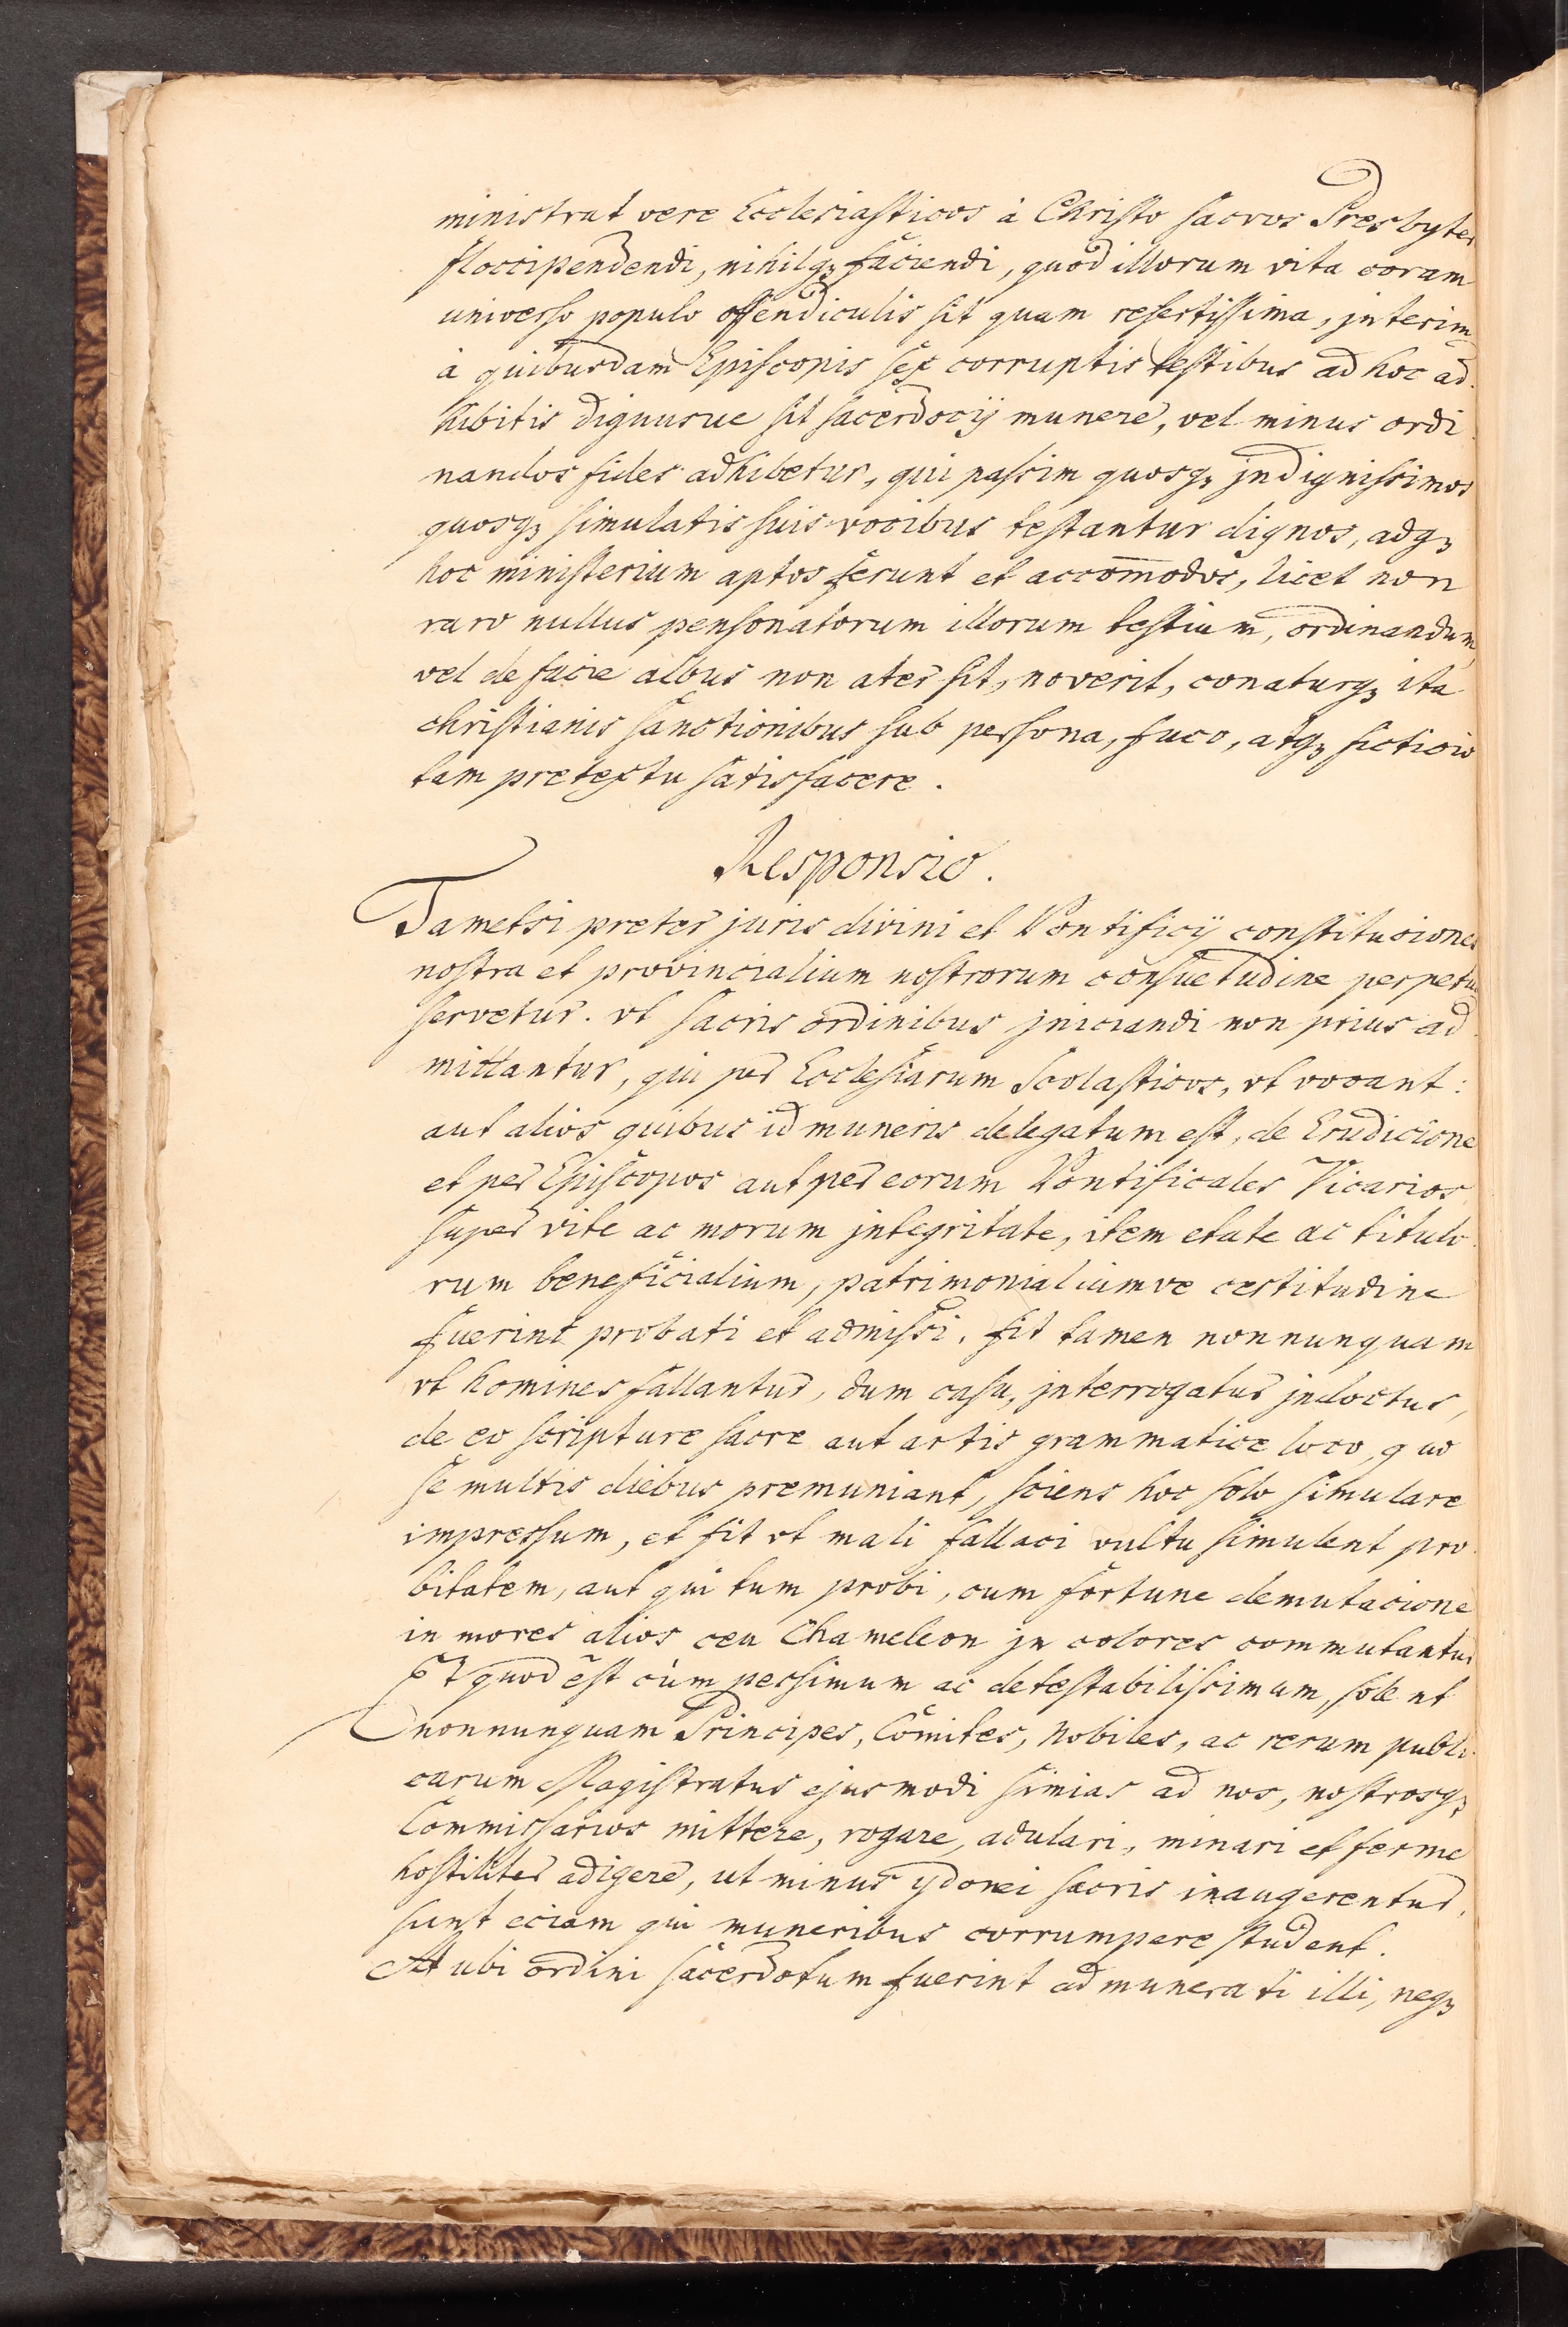 ministrat vere Ecclesiasticos à Christo sacros Presbyter
floccipendendi, nihilq₃ faciendi, quod illorum vita coram
universo populo offendiculis sit quam refertissima, interim
à quibusdam Episcopis sex corruptis testibus ad hoc ad
hibitis dignusue sit sacerdocij munere, vel minus ordi
nandos fides adhibetur, qui passim quosq₃ jndignissimos
quosq₃ simulatis suis vocibus testantur dignos, adq₃
hoc ministerium aptos ferunt et accom̄odos, licet non
raro nullus personatorum illorum testium, ordinandum
vel de facie albus non ater sit, noverit, conaturq₃ ita
christianis sanctionibus sub persona, fuco, atq₃ ficticio
tam pretextu satisfacere.
Responsio.
Tametsi preter juris divini et Pontificij constituciones
nostra et provincialium nostrorum consuetudine perpetuo
servetur. vt sacris ordinibus jniciandi non prius ad
mittantur, qui per Ecclesiarum Scolasticos, vt vocant:
aut alios quibus id muneris delegatum est, de Erudicione
et per Episcopos aut per eorum Pontificales Vicarios
super vite ac morum jntegritate, item etate ac titulo
rum beneficialium, patrimonialiumve certitudine
fuerint probati et admissi. fit tamen nonnunquam
vt homines fallantur, dum casu, jnterrogatur jndoctus,
de eo scripture sacre aut artis grammatice loco, quo
se multis diebus premuniant, sciens hoc solo simulare
impressum, et fit vt mali fallaci vultu simulent pro
bitatem, aut qui tum probi, cum fortune demutacione
in mores alios ceu Chameleon jn colores commutantur
Et quod est cùm pessimum ac detestabilissimum, solent
nonnunquam Principes, Comites, Nobiles, ac rerum publi
carum Magistratus ejusmodi simias ad nos, nostrosq₃
Commissarios mittere, rogare, adulari, minari et ferme
hostiliter adigere, ut minus ydonei sacris inaugerentur,
sunt eciam qui muneribus corrumpere student.
At ubi ordini sacerdotum fuerint admunerati illi, neq₃